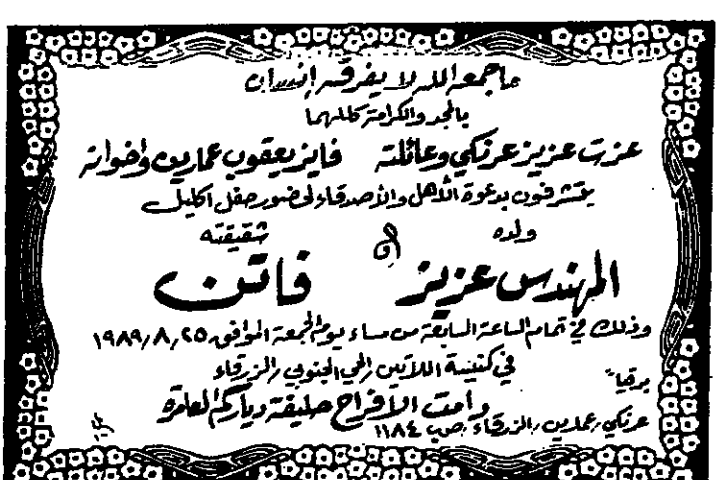 ما جمعه الله لا يفرقه إنسان
بالمجد والكرامة كللهما
عزت عزيز عرنكي وعائلته فايز يعقوب عمارين واخوانه
يتشرفون بدعوة الأهل والأصدقاء لحضور حفل اكليل
ولده شقيقته
المهندس عزيز و فاتن
وذلك في تمام الساعة السابعة من مساء يوم الجمعة الموافق ١٩٨٩/٨/٢٥
في كنيسة اللاتين / الحي الجنوبي / الزرقاء
برقياً
دامت الافراح حليفة دياركم العامرة
عرنكي / عمارين / الزرقاء / ص.ب ١١٨٤